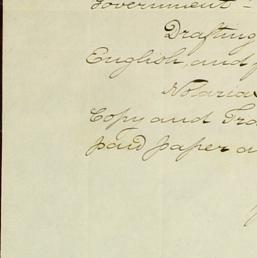 Government -
Drafting
English, and
Notarial
Copy and Tra
paid paper a